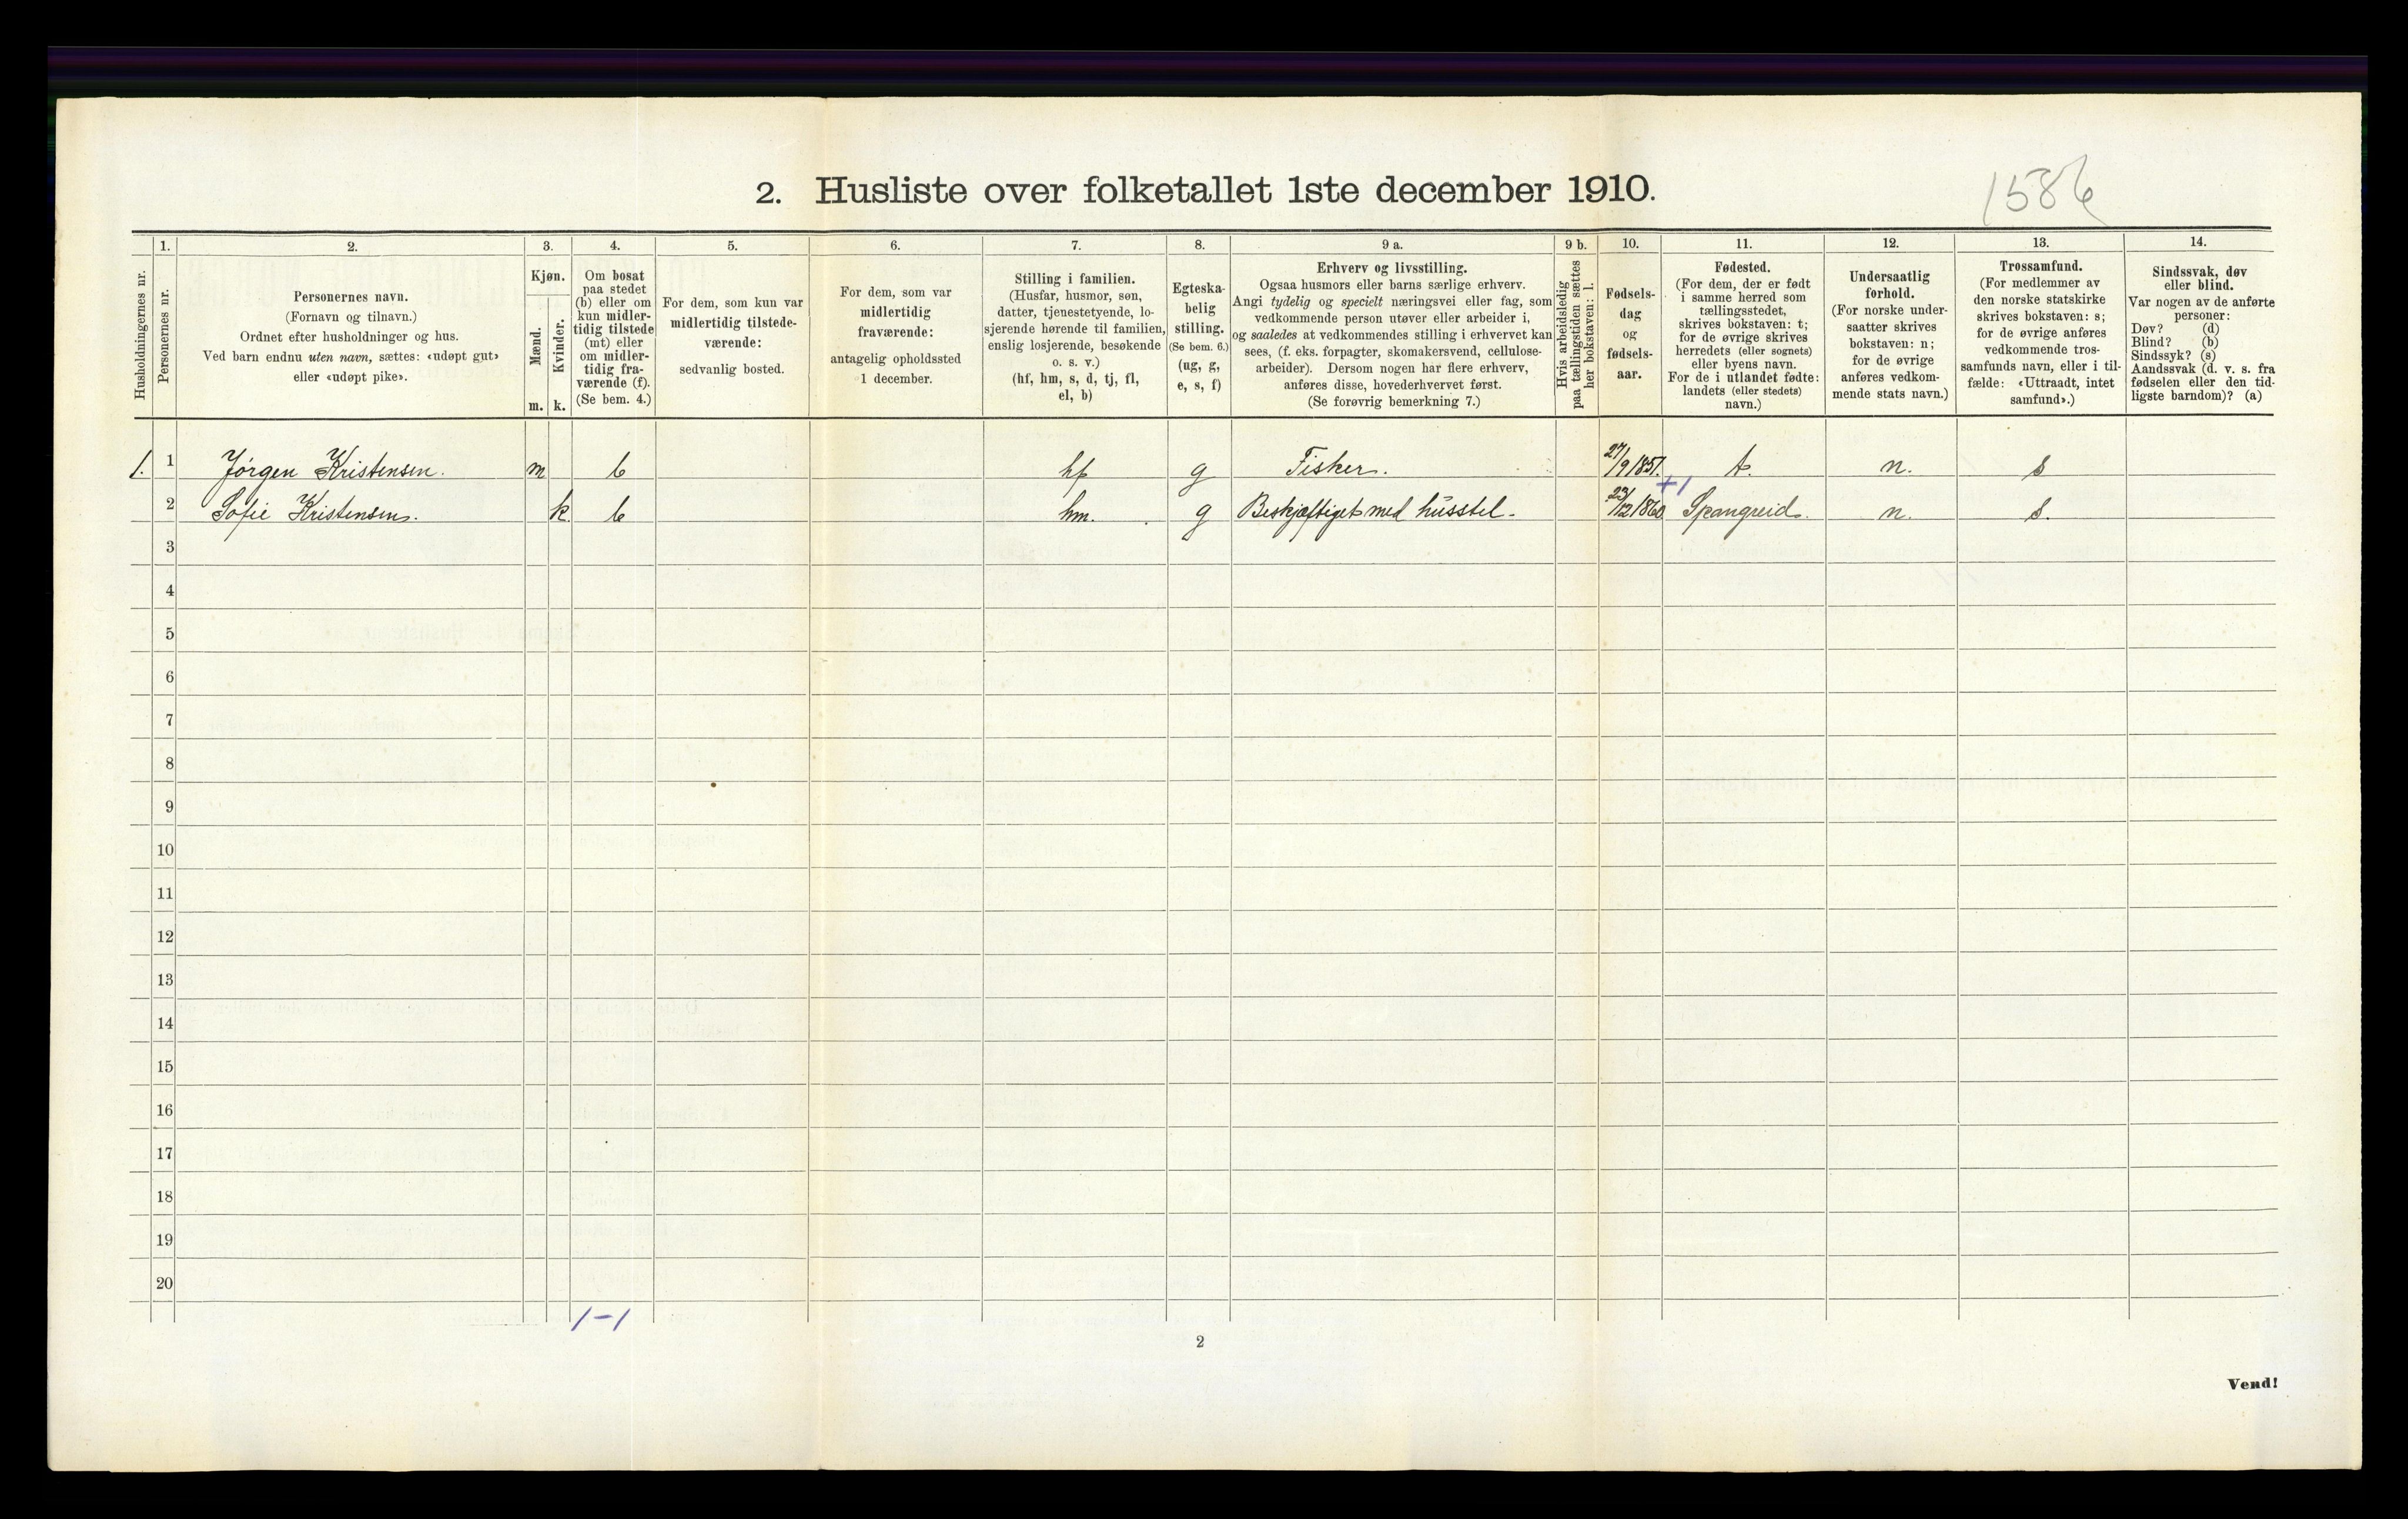 2. Husliste over folketallet 1ste december 1910.
1586
Husholdningernes nr.
1.
Personernes nr.
2.
Personernes navn.
(Fornavn og tilnavn.)
Ordnet efter husholdninger og hus.
Ved barn endnu uten navn, sættes: «udøpt gut»
eller «udøpt pike».
3.
Kjøn.
Mænd.
Kvinder.
m.
k.
4.
Om bosat
paa stedet
(b) eller om
kun midler-
tidig tilstede
(mt) eller
om midler-
tidig fra-
værende (f).
(Se bem. 4.)
5.
For dem, som kun var
midlertidig tilstede-
værende:
sedvanlig bosted.
6.
For dem, som var
midlertidig
fraværende:
antagelig opholdssted
1 december.
7.
Stilling i familien.
(Husfar, husmor, søn,
datter, tjenestetyende, lo-
sjerende hørende til familien,
enslig losjerende, besøkende
o. s. v.)
(hf, hm, s, d, tj, fl,
el, b)
8.
Egteska-
belig
stilling.
(Se bem. 6.)
(ug, g,
e, s, f)
9 a.
Erhverv og livsstilling.
Ogsaa husmors eller barns særlige erhverv.
Angi tydelig og specielt næringsvei eller fag, som
vedkommende person utøver eller arbeider i,
og saaledes at vedkommendes stilling i erhvervet kan
sees, (f. eks. forpagter, skomakersvend, cellulose-
arbeider). Dersom nogen har flere erhverv,
anføres disse, hovederhvervet først.
(Se forøvrig bemerkning 7.)
9 b.
Hvis arbeidsledig
paa tællingstiden sættes
her bokstaven: l.
10.
Fødsels-
dag
og
fødsels-
aar.
11.
Fødested.
(For dem, der er født
i samme herred som
tællingsstedet,
skrives bokstaven: t;
for de øvrige skrives
herredets (eller sognets)
eller byens navn.
For de i utlandet fødte:
landets (eller stedets)
navn.)
12.
Undersaatlig
forhold.
(For norske under-
saatter skrives
bokstaven: n;
for de øvrige
anføres vedkom-
mende stats navn.)
13.
Trossamfund.
(For medlemmer av
den norske statskirke
skrives bokstaven: s;
for de øvrige anføres
vedkommende tros-
samfunds navn, eller i til-
fælde: «Uttraadt, intet
samfund».)
14.
Sindssvak, døv
eller blind.
Var nogen av de anførte
personer:
Døv? (d)
Blind? (b)
Sindssyk? (s)
Aandssvak (d. v. s. fra
fødselen eller den tid-
ligste barndom)? (a)
1. 1 Jørgen Kristensen. m b hf g Fisker. 27/9 1851. t. n. s
+1
2 Sofie Kristensen. k. b hm. g Beskjæftiget med husstel. 23/12 1860 Spangreid. n. s.
3
4
5
6
7
8
9
10
11
12
13
14
15
16
17
18
19
20
1-1
2
Vend!